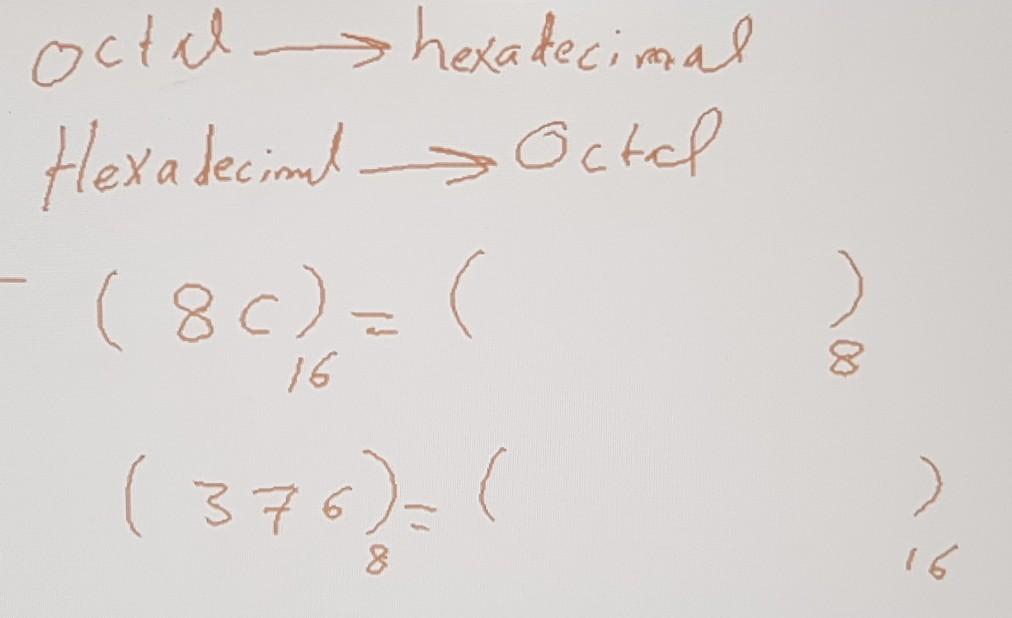 Octal → hexadecimal
Hexadecimal → Octal
- (8C)₁₆ = ( )₈
(376)₈ = ( )₁₆